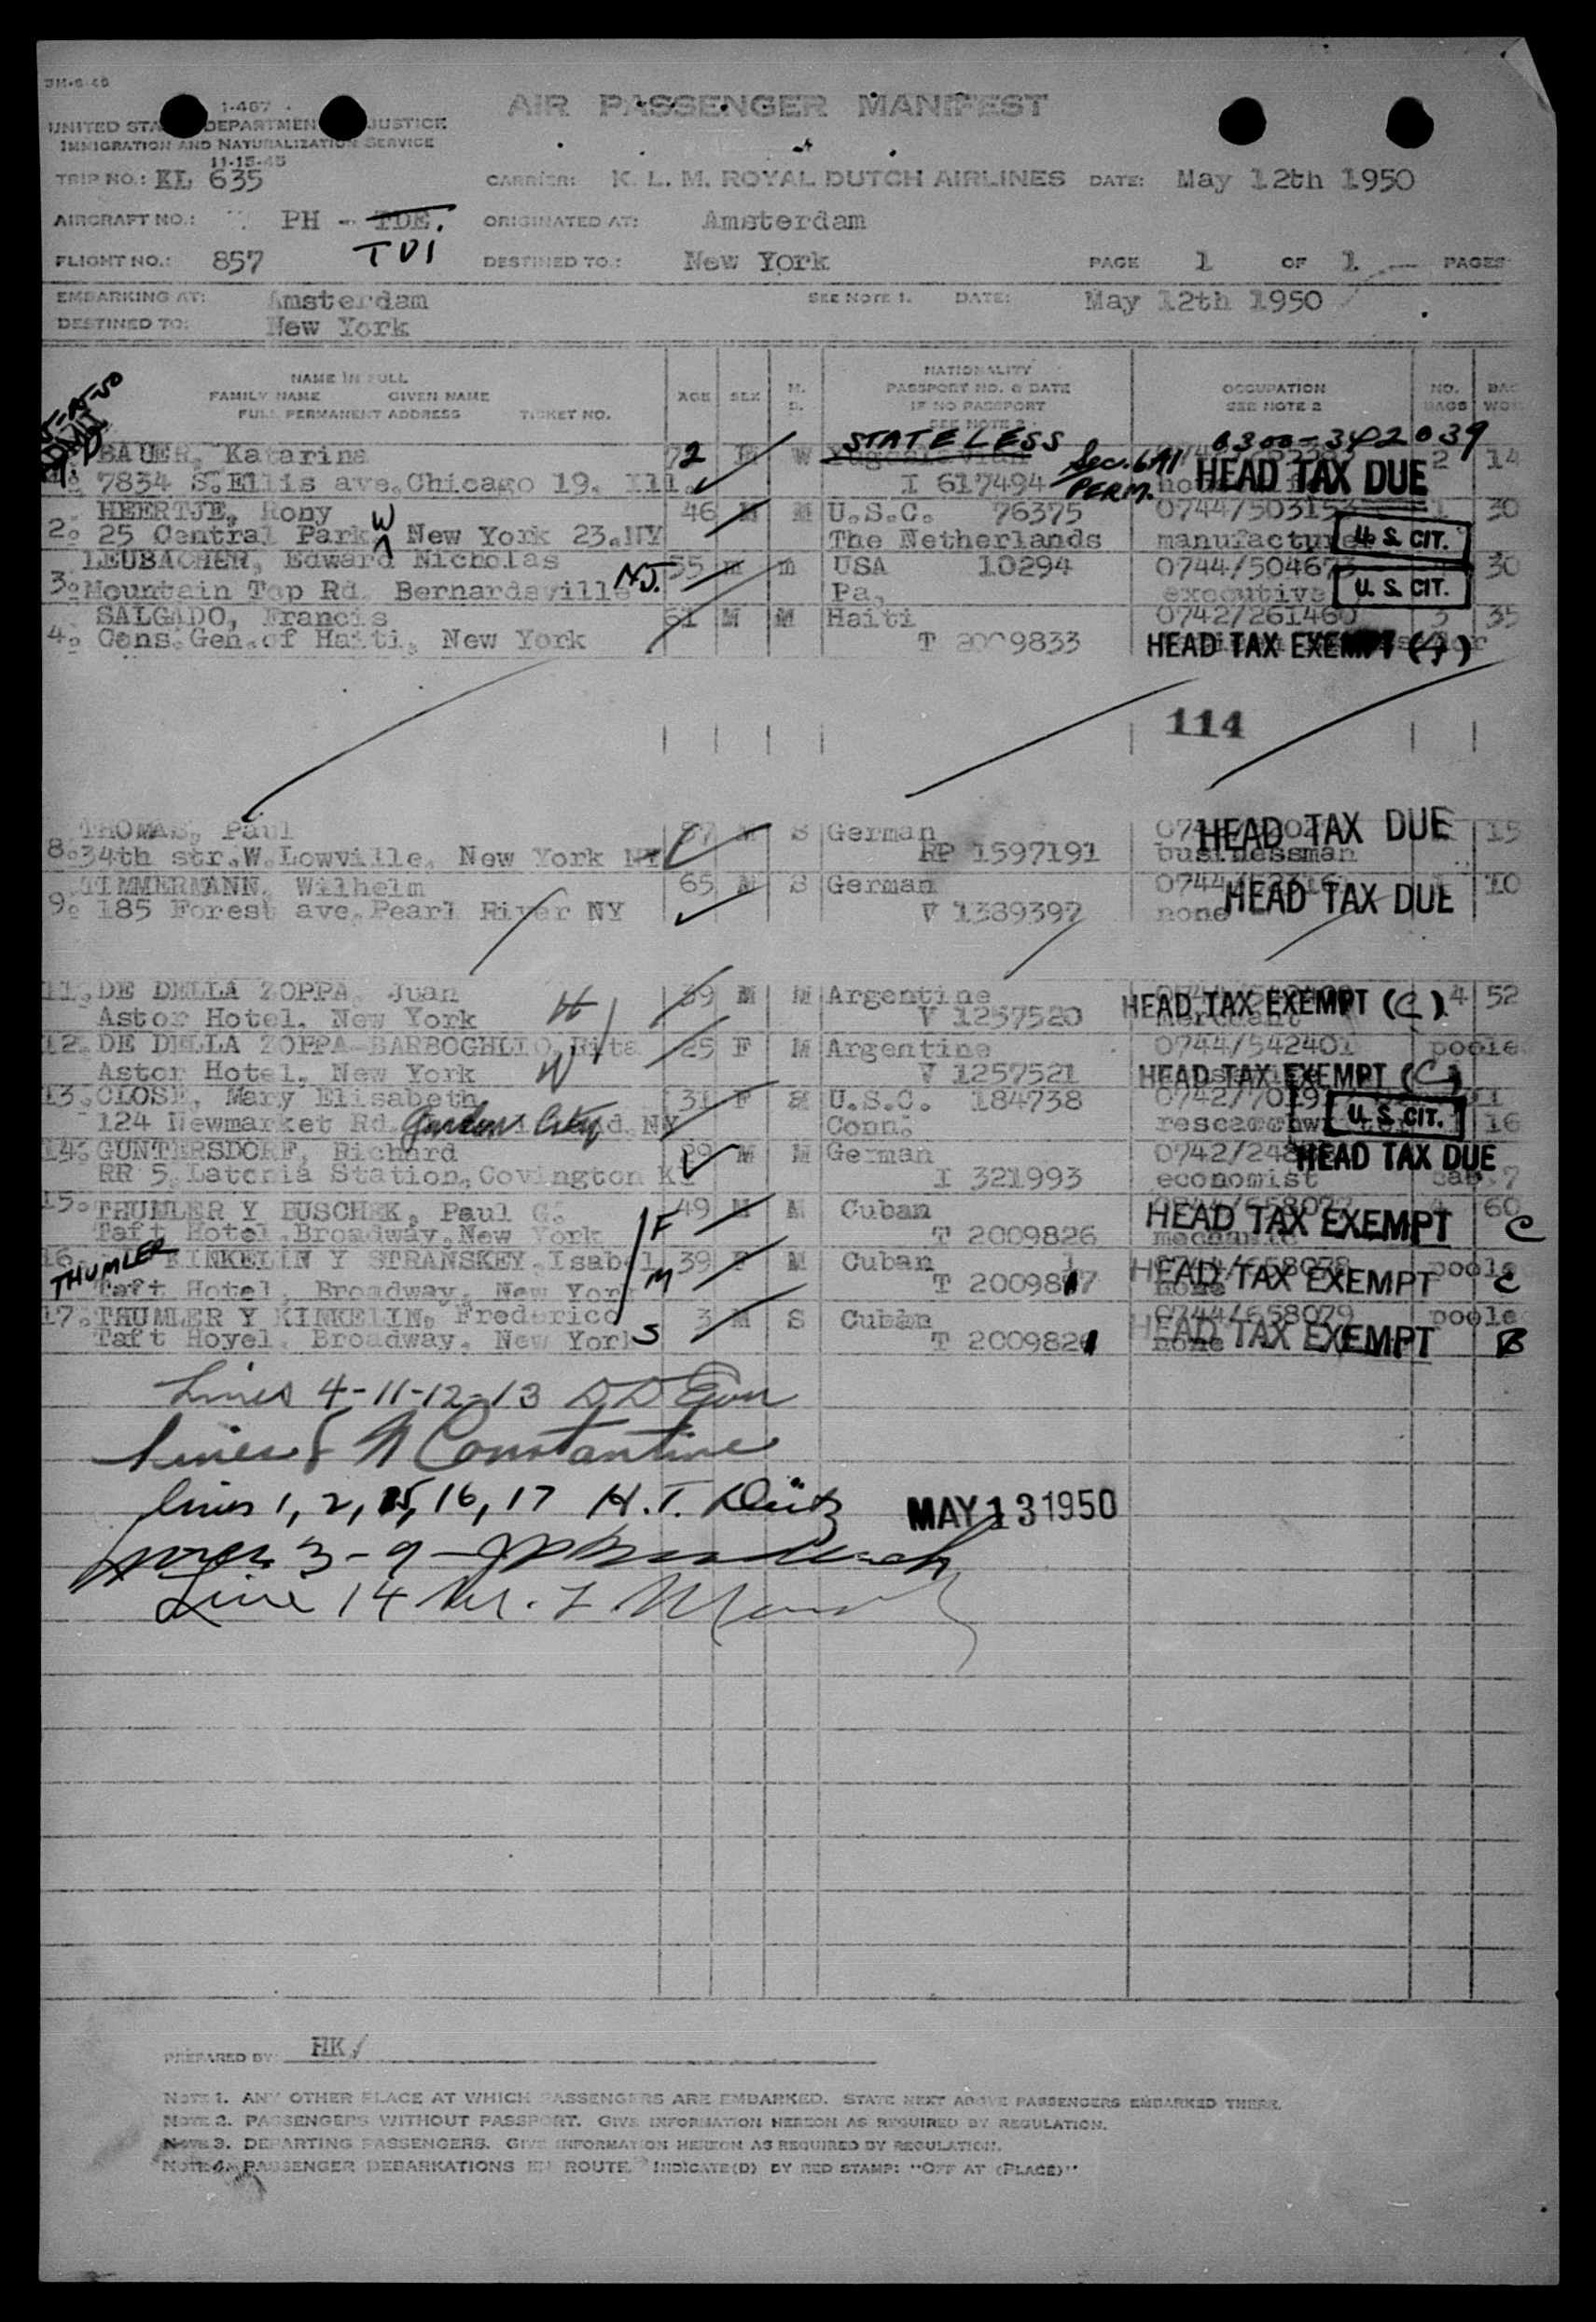 1-467
AIR PASSENGER MANIFEST
UNITED STA DEPARTMEN JUSTICE
IMMIGRATION AND NATURALIZATION SERVICE
11-15-45
TRIP NO.: KL 635 CARRIER: K. L. M. ROYAL DUTCH AIRLINES DATE: May 12th 1950
AIRCRAFT NO.: PH - TDE. ORIGINATED AT: Amsterdam
TDI
FLIGHT NO.: 857 DESTINED TO.: New York PAGE 1 OF 1 PAGES
EMBARKING AT: Amsterdam SEE NOTE 1. DATE: May 12th 1950
DESTINED TO: New York
NAME IN FULL
FAMILY NAME GIVEN NAME
FULL PERMANENT ADDRESS TICKET NO.
AGE SEX M. S.
NATIONALITY
PASSPORT NO. & DATE
IF NO PASSPORT
SEE NOTE 2
OCCUPATION
SEE NOTE 2
NO. BAGS
STATELESS 0300-342039
BAUER, Katarina 72 W Yugoslavian 2 14
7834 S.Ellis ave.Chicago 19. Ill. I 617494 PERM. HEAD TAX DUE
HEERTJE, Rony 46 M M U.S.C. 76375 1 30
2. 25 Central Park W New York 23.NY The Netherlands manufacturer U. S. CIT.
LEUBACHER, Edward Nicholas 55 m m USA 10294 30
3. Mountain Top Rd. Bernardsville N.J. Pa. executive U. S. CIT.
SALGADO, Francis 61 M M Haiti 0742/261460 3 35
4. Cons.Gen.of Haiti, New York T 2009833 HEAD TAX EXEMPT
114
THOMAS, Paul 57 M S German HEAD TAX DUE 15
8. 34th str.W.Lowville. New York NY RP 1597191 businessman
TIMMERMANN, Wilhelm 65 M S German 10
9. 185 Forest ave.Pearl River NY V 1389397 none HEAD TAX DUE
11. DE DELLA ZOPPA, Juan H 39 M M Argentine 4 52
Astor Hotel, New York V 1257520 merchant HEAD TAX EXEMPT (C)
12. DE DELLA ZOPPA-BARBOGHLIO, Rita 25 F M Argentine 0744/542401 poole
Astor Hotel, New York W V 1257521 HEAD TAX EXEMPT (C)
13. CLOSE, Mary Elisabeth 31 F U.S.C. 184738
124 Newmarket Rd. Garden City NY Conn. U. S. CIT. 16
14. GUNTERSDORF, Richard 29 M M German
RR 5, Latonia Station, Covington KY I 321993 economist HEAD TAX DUE
15. THUMLER Y BUSCHEK, Paul G. 49 M M Cuban 60
Taft Hotel.Broadway.New York F T 2009826 mechanic HEAD TAX EXEMPT C
16. THUMLER KINKELIN Y STRANSKEY, Isabel 39 F M Cuban poole
Taft Hotel, Broadway, New York M T 2009817 none HEAD TAX EXEMPT C
17. THUMLER Y KINKELIN, Frederico 3 M S Cuban 0744/658079 poole
Taft Hoyel, Broadway, New York S T 2009821 none HEAD TAX EXEMPT B
Lines 4-11-12-13
Lines 8 Constantine
lines 1, 2, 15, 16, 17 H.T.
MAY 13 1950
3-9
Line 14
PREPARED BY: HK/
NOTE 1. ANY OTHER PLACE AT WHICH PASSENGERS ARE EMBARKED. STATE NEXT ABOVE PASSENGERS EMBARKED THERE.
NOTE 2. PASSENGERS WITHOUT PASSPORT. GIVE INFORMATION HEREON AS REQUIRED BY REGULATION.
NOTE 3. DEPARTING PASSENGERS. GIVE INFORMATION HEREON AS REQUIRED BY REGULATION.
NOTE 4. PASSENGER DEBARKATIONS EN ROUTE. INDICATE(D) BY RED STAMP: "OFF AT (PLACE)"